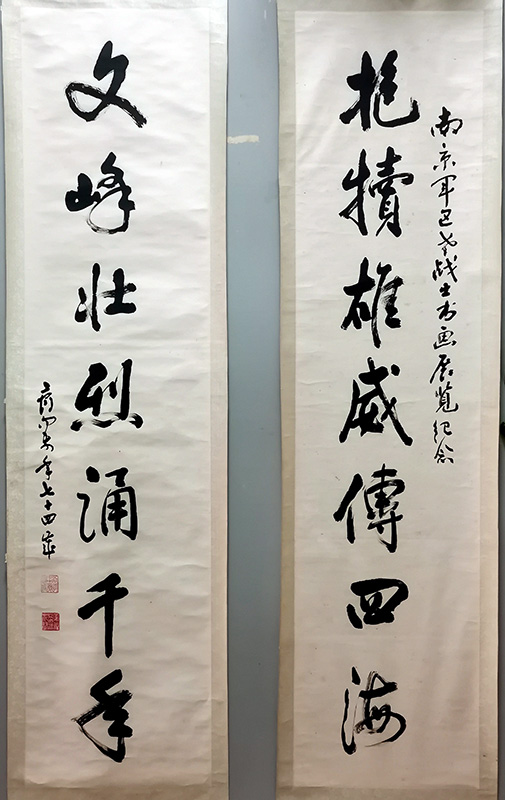 南京军区老战士书画展览纪念
抱犢雄威傳四海
文峰壮烈涌千年
年七十四岁